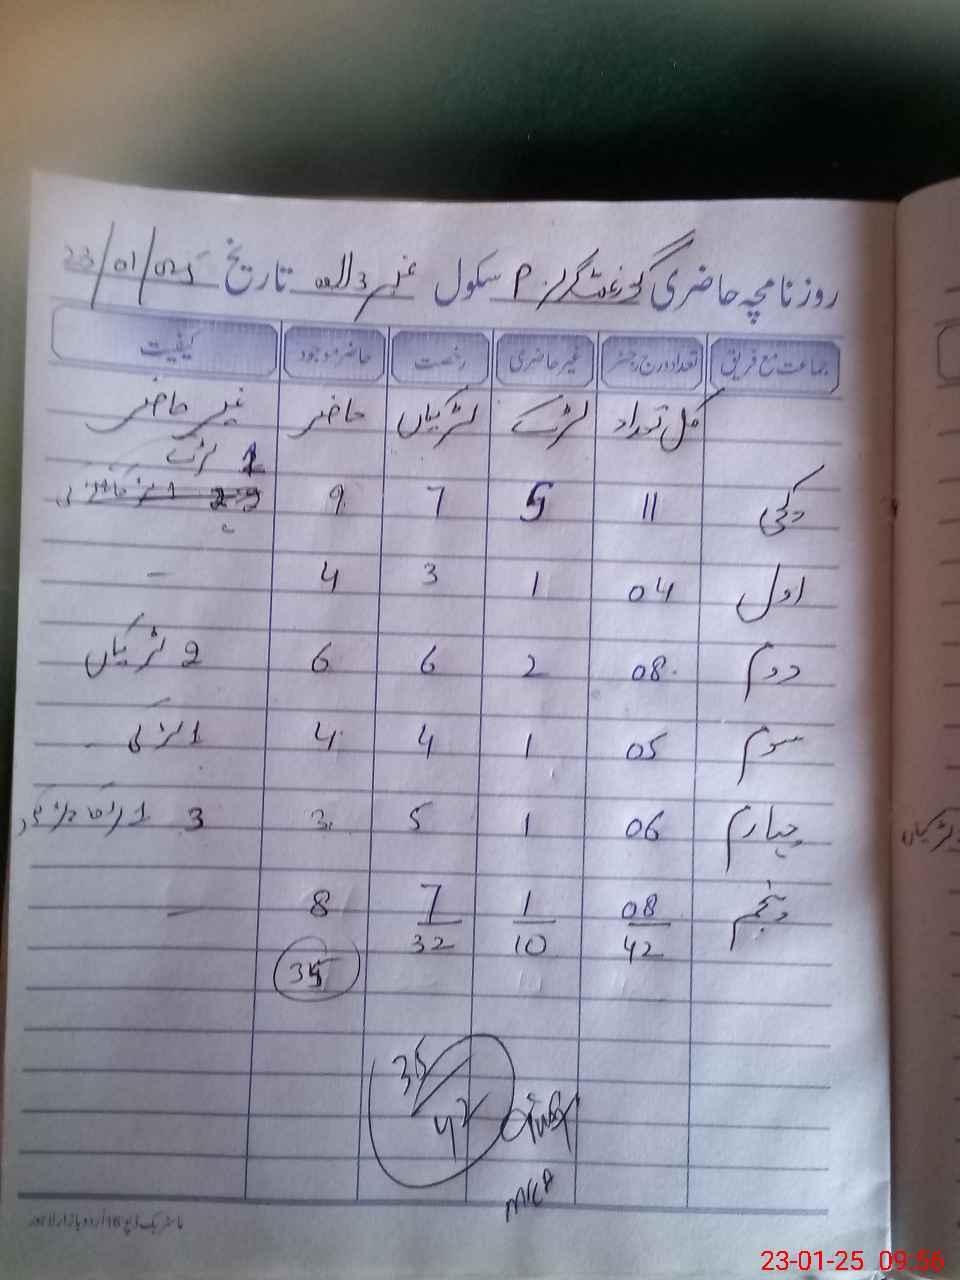 روزنامچہ حاضری گورنمنٹ گرلز P سکول نمبر 3 تاریخ 23/01/025
جماعت مع فریق تعداد درج رجسٹر غیر حاضری رخصت حاضر موجود کیفیت
کل تعداد لڑکے لڑکیاں حاضر غیر حاضر
1 لڑکے
11 7 9
اول 04 1 3 4 -
دوم 08 2 6 6 2 لڑکیاں
سوم 05 1 4 4 1 لڑکی
چہارم 06 1 5 3 3
پنجم 08 1 7 8 -
42 10 32
35
42
23-01-25 09:56